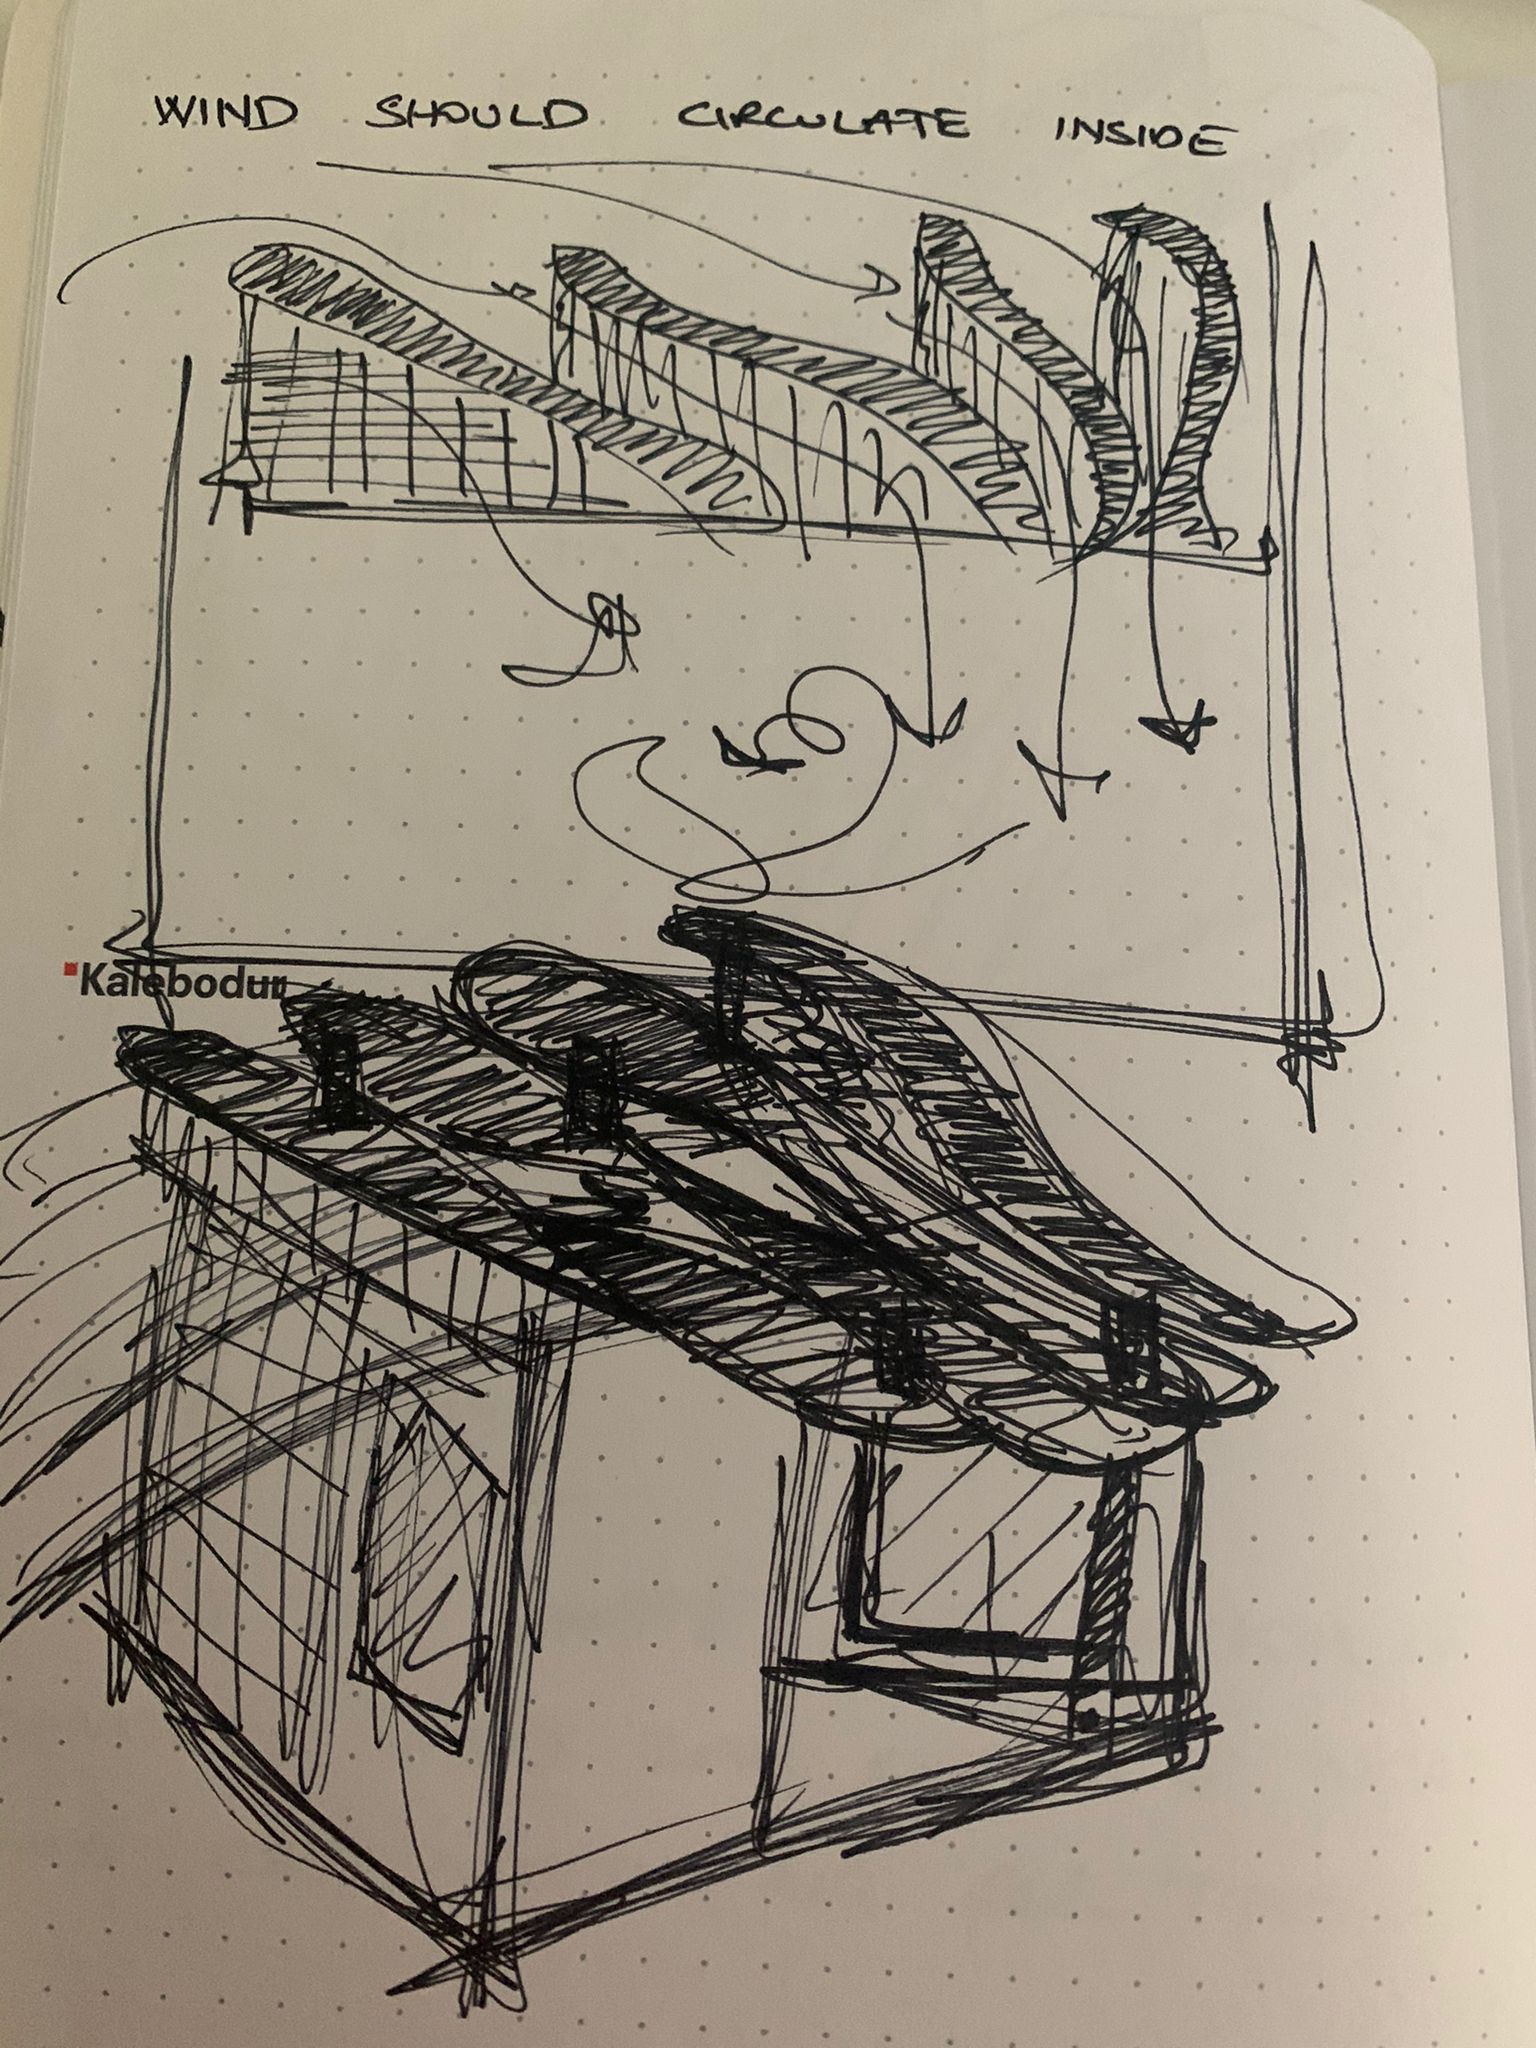 WIND SHOULD CIRCULATE INSIDE
Kalebodur